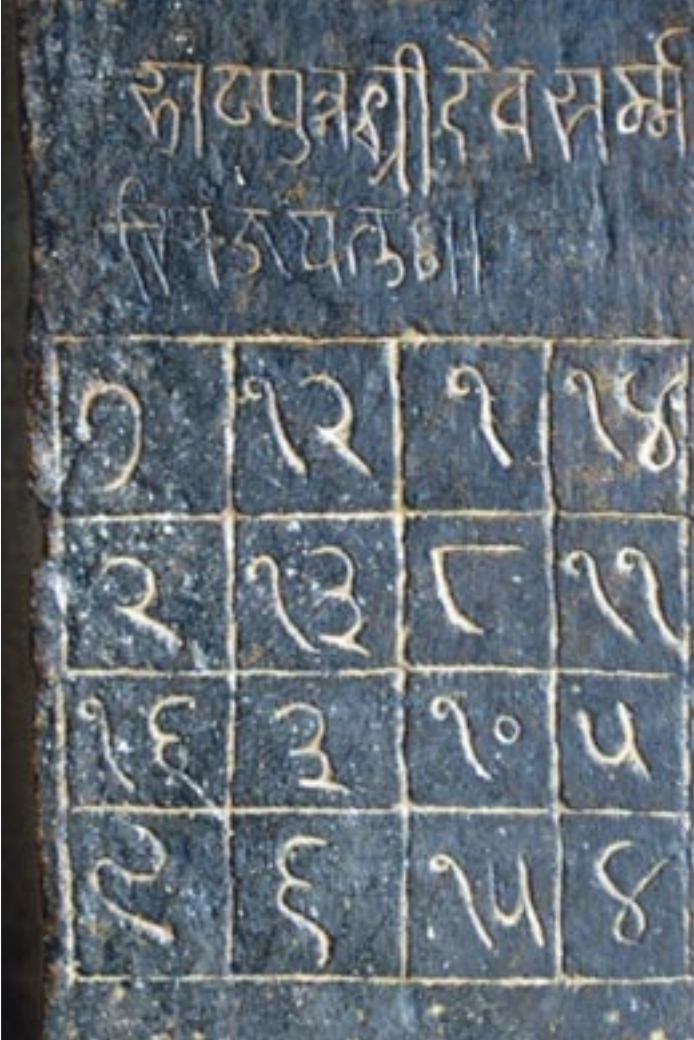 पुत्रश्रीदेवसर्म्म
जयतुः॥
७ १२ १ १४
२ १३ ८ ११
१६ ३ १० ५
९ ६ १५ ४